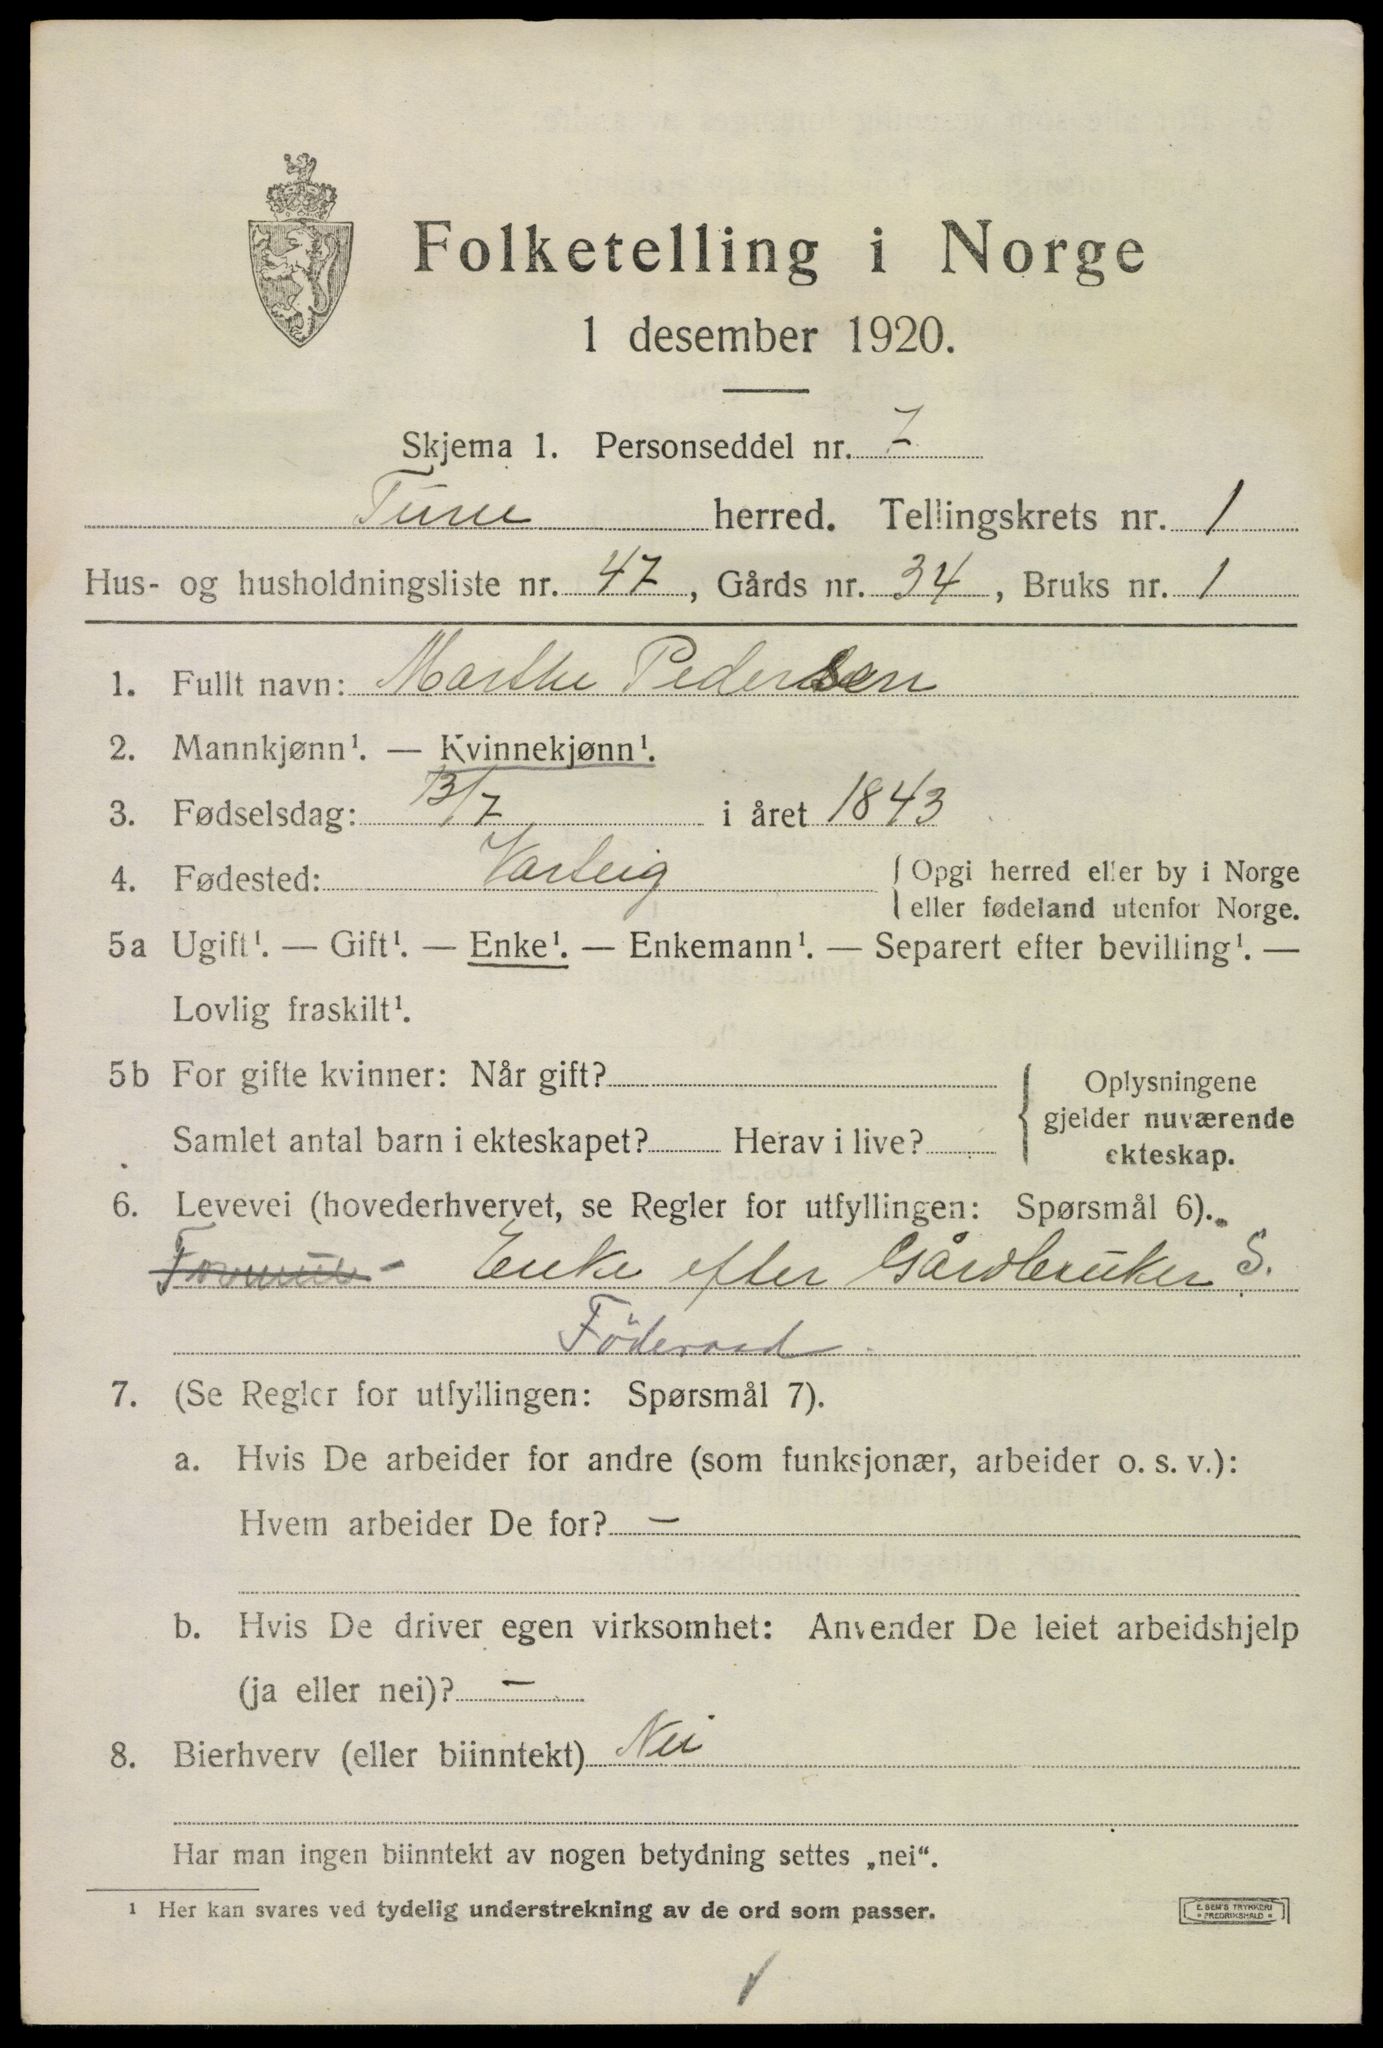 Folketelling i Norge
1 desember 1920.
Skjema 1. Personseddel nr. 7
Tune herred. Tellingskrets nr. 1
Hus- og husholdningsliste nr. 47, Gårds nr. 34, Bruks nr. 1
1. Fullt navn: Marthe Pedersen
2. Mannkjønn¹. — Kvinnekjønn¹.
3. Fødselsdag: 13/7 i året 1843
4. Fødested: Varteig { Opgi herred eller by i Norge
eller fødeland utenfor Norge.
5a Ugift¹. — Gift¹. — Enke¹. — Enkemann¹. — Separert efter bevilling¹. —
Lovlig fraskilt¹.
5b For gifte kvinner: Når gift?
Samlet antal barn i ekteskapet? Herav i live?
{ Oplysningene
gjelder nuværende
ekteskap.
6. Levevei (hovederhvervet, se Regler for utfyllingen: Spørsmål 6).
- Enke efter Gårdbruker S.
Föderaad.
7. (Se Regler for utfyllingen: Spørsmål 7).
a. Hvis De arbeider for andre (som funksjonær, arbeider o. s. v.):
Hvem arbeider De for? —
b. Hvis De driver egen virksomhet: Anvender De leiet arbeidshjelp
(ja eller nei)? —
8. Bierhverv (eller biinntekt) Nei
Har man ingen biinntekt av nogen betydning settes „nei“.
¹ Her kan svares ved tydelig understrekning av de ord som passer.
E. SEM'S TRYKKERI
• FREDRIKSHALD •